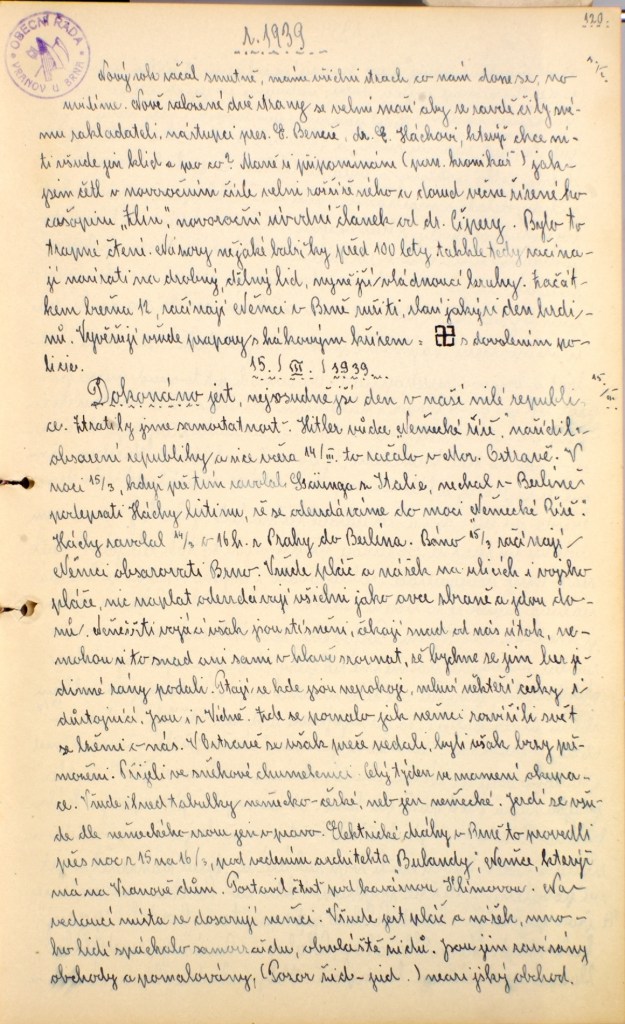 120.
OBECNÍ RADA
VRANOV U BRNA
r. 1939
Nový rok začal smutně, máme všichni strach co nám donese, no
uvidíme. Nově založené dvě strany se velmi snaží aby se zavděčily své-
mu zakladateli, nástupci pres. E. Beneše, dr. E. Háchovi, který chce mí-
ti všude jen klid a pro co? Maně si připomínám (pozn. kronikář) jak
jsem četl v novoročním čísle velmi rozšířeného a dosud věčně šířeného
časopisu „Zlín“, novoroční úvodní článek od dr. Čipery. Bylo to
trapné čtení. Názory nějaké babičky před 100 lety takhle tedy začína-
jí nazírati na drobný, dělný lid, nynější vládnoucí kruhy. Začát-
kem března 12, začínají Němci v Brně rušiti, slaví jakýsi den hrdi-
nů. Vyvěšují všude prapory s hákovým křížem = 卐 s dovolením po-
licie.
15. / III. / 1939
15/III.
Dokonáno jest, nejosudnější den v naší milé republi-
ce. Ztratily jsme samostatnost. Hitler vůdce „Německé říše“ nařídil
obsazení republiky a sice včera 14/III. to začalo v Mor. Ostravě. V
noci 15/3, když při tím zavolal Göringa z Italie, nechal v Berlíně
podepsati Háchy listinu, že se odevzdáváme do moci „Německé Říše“.
Háchy zavolal 14/3 o 16 h. z Prahy do Berlína. Ráno 15/3 začínají
Němci obsazovati Brno. Všude pláč a nářek na ulicích i vojsko
pláče, nic naplat odevzdávají všichni jako ovce zbraně a jdou do-
mů. Němečtí vojáci však jsou stísnění, čekají snad od nás útok, ne-
mohou si to snad ani sami v hlavě srovnat, že bychme se jim bez je-
dinné rány podali. Ptají se kde jsou nepokoje, mluví někteří česky i
důstojníci. Jsou i z Vídně. Zde se poznalo jak němci rozvířili svět
se lžemi o nás. V Ostravě se však přeče nedali, byli však brzy pře-
moženi. Přijeli ve sněhové chumelenici. Celý týden ve znamení okupa-
ce. Všude ihned tabulky německo-české, neb jen německé. Jezdí se všu-
de dle německého vzoru jen v pravo. Elektrické dráhy v Brně to provedli
přes noc z 15 na 16/3, pod vedením architekta „Bulandy“, Němce, který
má na Vranově dům. Postavil čtvrt pod kavárnou Klímovou. Na
vedoucí místa se dosazují němci. Všude jest pláč a nářek, mno-
ho lidí spáchalo samovraždu, obzvláště židů. Jsou jim zavírány
obchody a pomalovány, (Pozor žid - jud.) nearijský obchod.